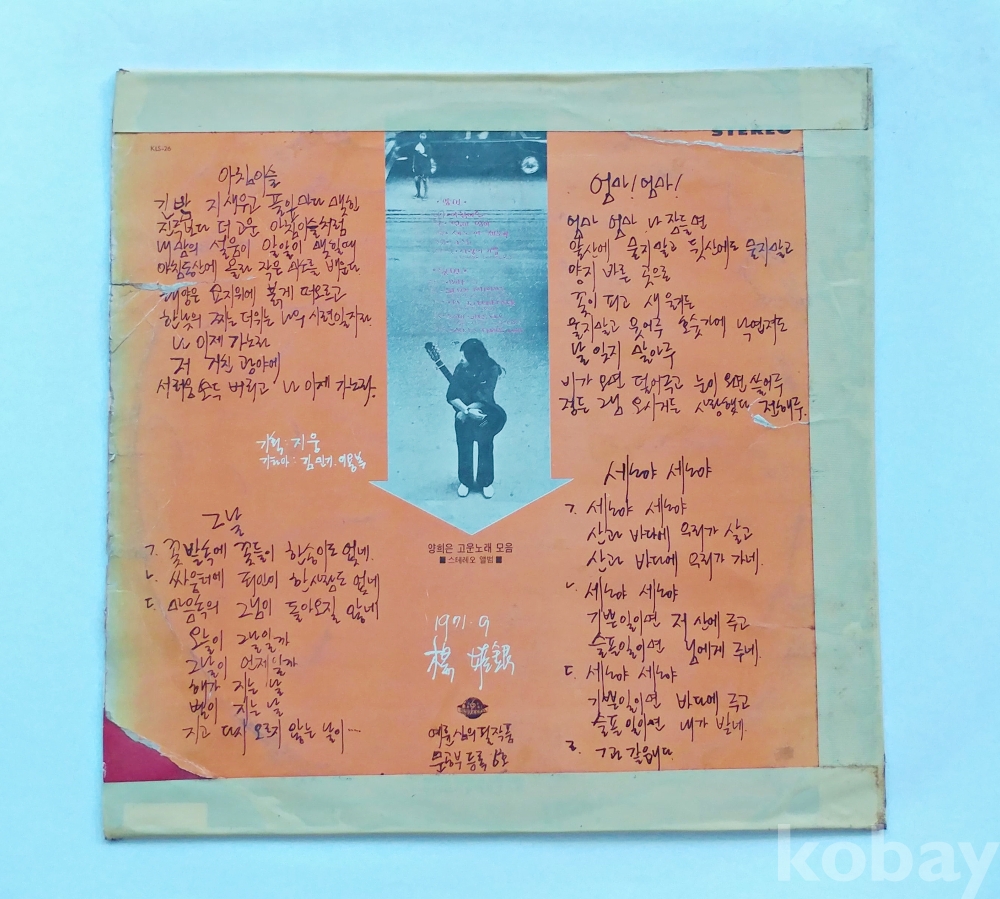 STEREO
KLS-26
아침이슬
긴밤 지새우고 풀잎마다 맺힌
진주보다 더 고운 아침이슬처럼
내 맘의 설움이 알알이 맺힐때
아침동산에 올라 작은 미소를 배운다
태양은 묘지위에 붉게 떠오르고
한낮의 찌는 더위는 나의 시련일지라
나 이제 가노라
저 거친 광야에
서러움 모두 버리고 나 이제 가노라.
기획: 지웅
기타아: 김민기. 이용복
그날
ㄱ. 꽃밭속에 꽃들이 한송이도 없네.
ㄴ. 싸움터에 죄인이 한사람도 없네
ㄷ. 마음속의 그님이 돌아오질 않네
오늘이 그날일까
그날이 언제일까
해가 지는 날
별이 지는 날
지고 다시 오르지 않는 날이…
양희은 고운노래 모음
■ 스테레오 앨범 ■
1971. 9
楊 姬銀
예륜심의필작품
문공부 등록 6호
엄마! 엄마!
엄마 엄마 나 잠들면
앞산에 묻지말고 뒷산에도 묻지말고
양지 바른 곳으로
꽃이 피고 새 울거든
울지말고 웃어주 호숫가에 낙엽져도
날 잊지 말아주
비가 오면 덮어주고 눈이 오면 쓸어주
정든 그님 오시거든 사랑했다 전해주.
세노야 세노야
ㄱ. 세노야 세노야
산과 바다에 우리가 살고
산과 바다에 우리가 가네.
ㄴ. 세노야 세노야
기쁜일이면 저 산에 주고
슬픈일이면 님에게 주네.
ㄷ. 세노야 세노야
기쁜일이면 바다에 주고
슬픈일이면 내가 받네.
ㄹ. ㄱ과 같읍니다
kobay